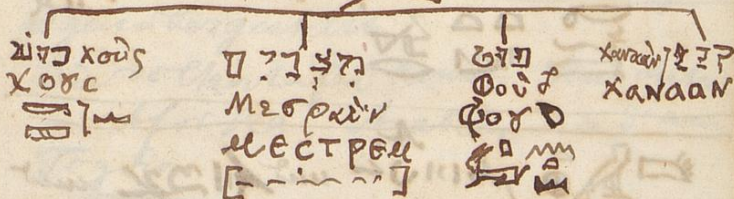 כוש χοῦς
ⲭⲟⲩⲥ
מצרים
Μεσραῒν
ⲙⲉⲥⲧⲣⲉⲙ
פוט
Φοὺδ
ⲫⲟⲩⲇ
χαναὰν כנען
ⲭⲁⲛⲁⲁⲛ